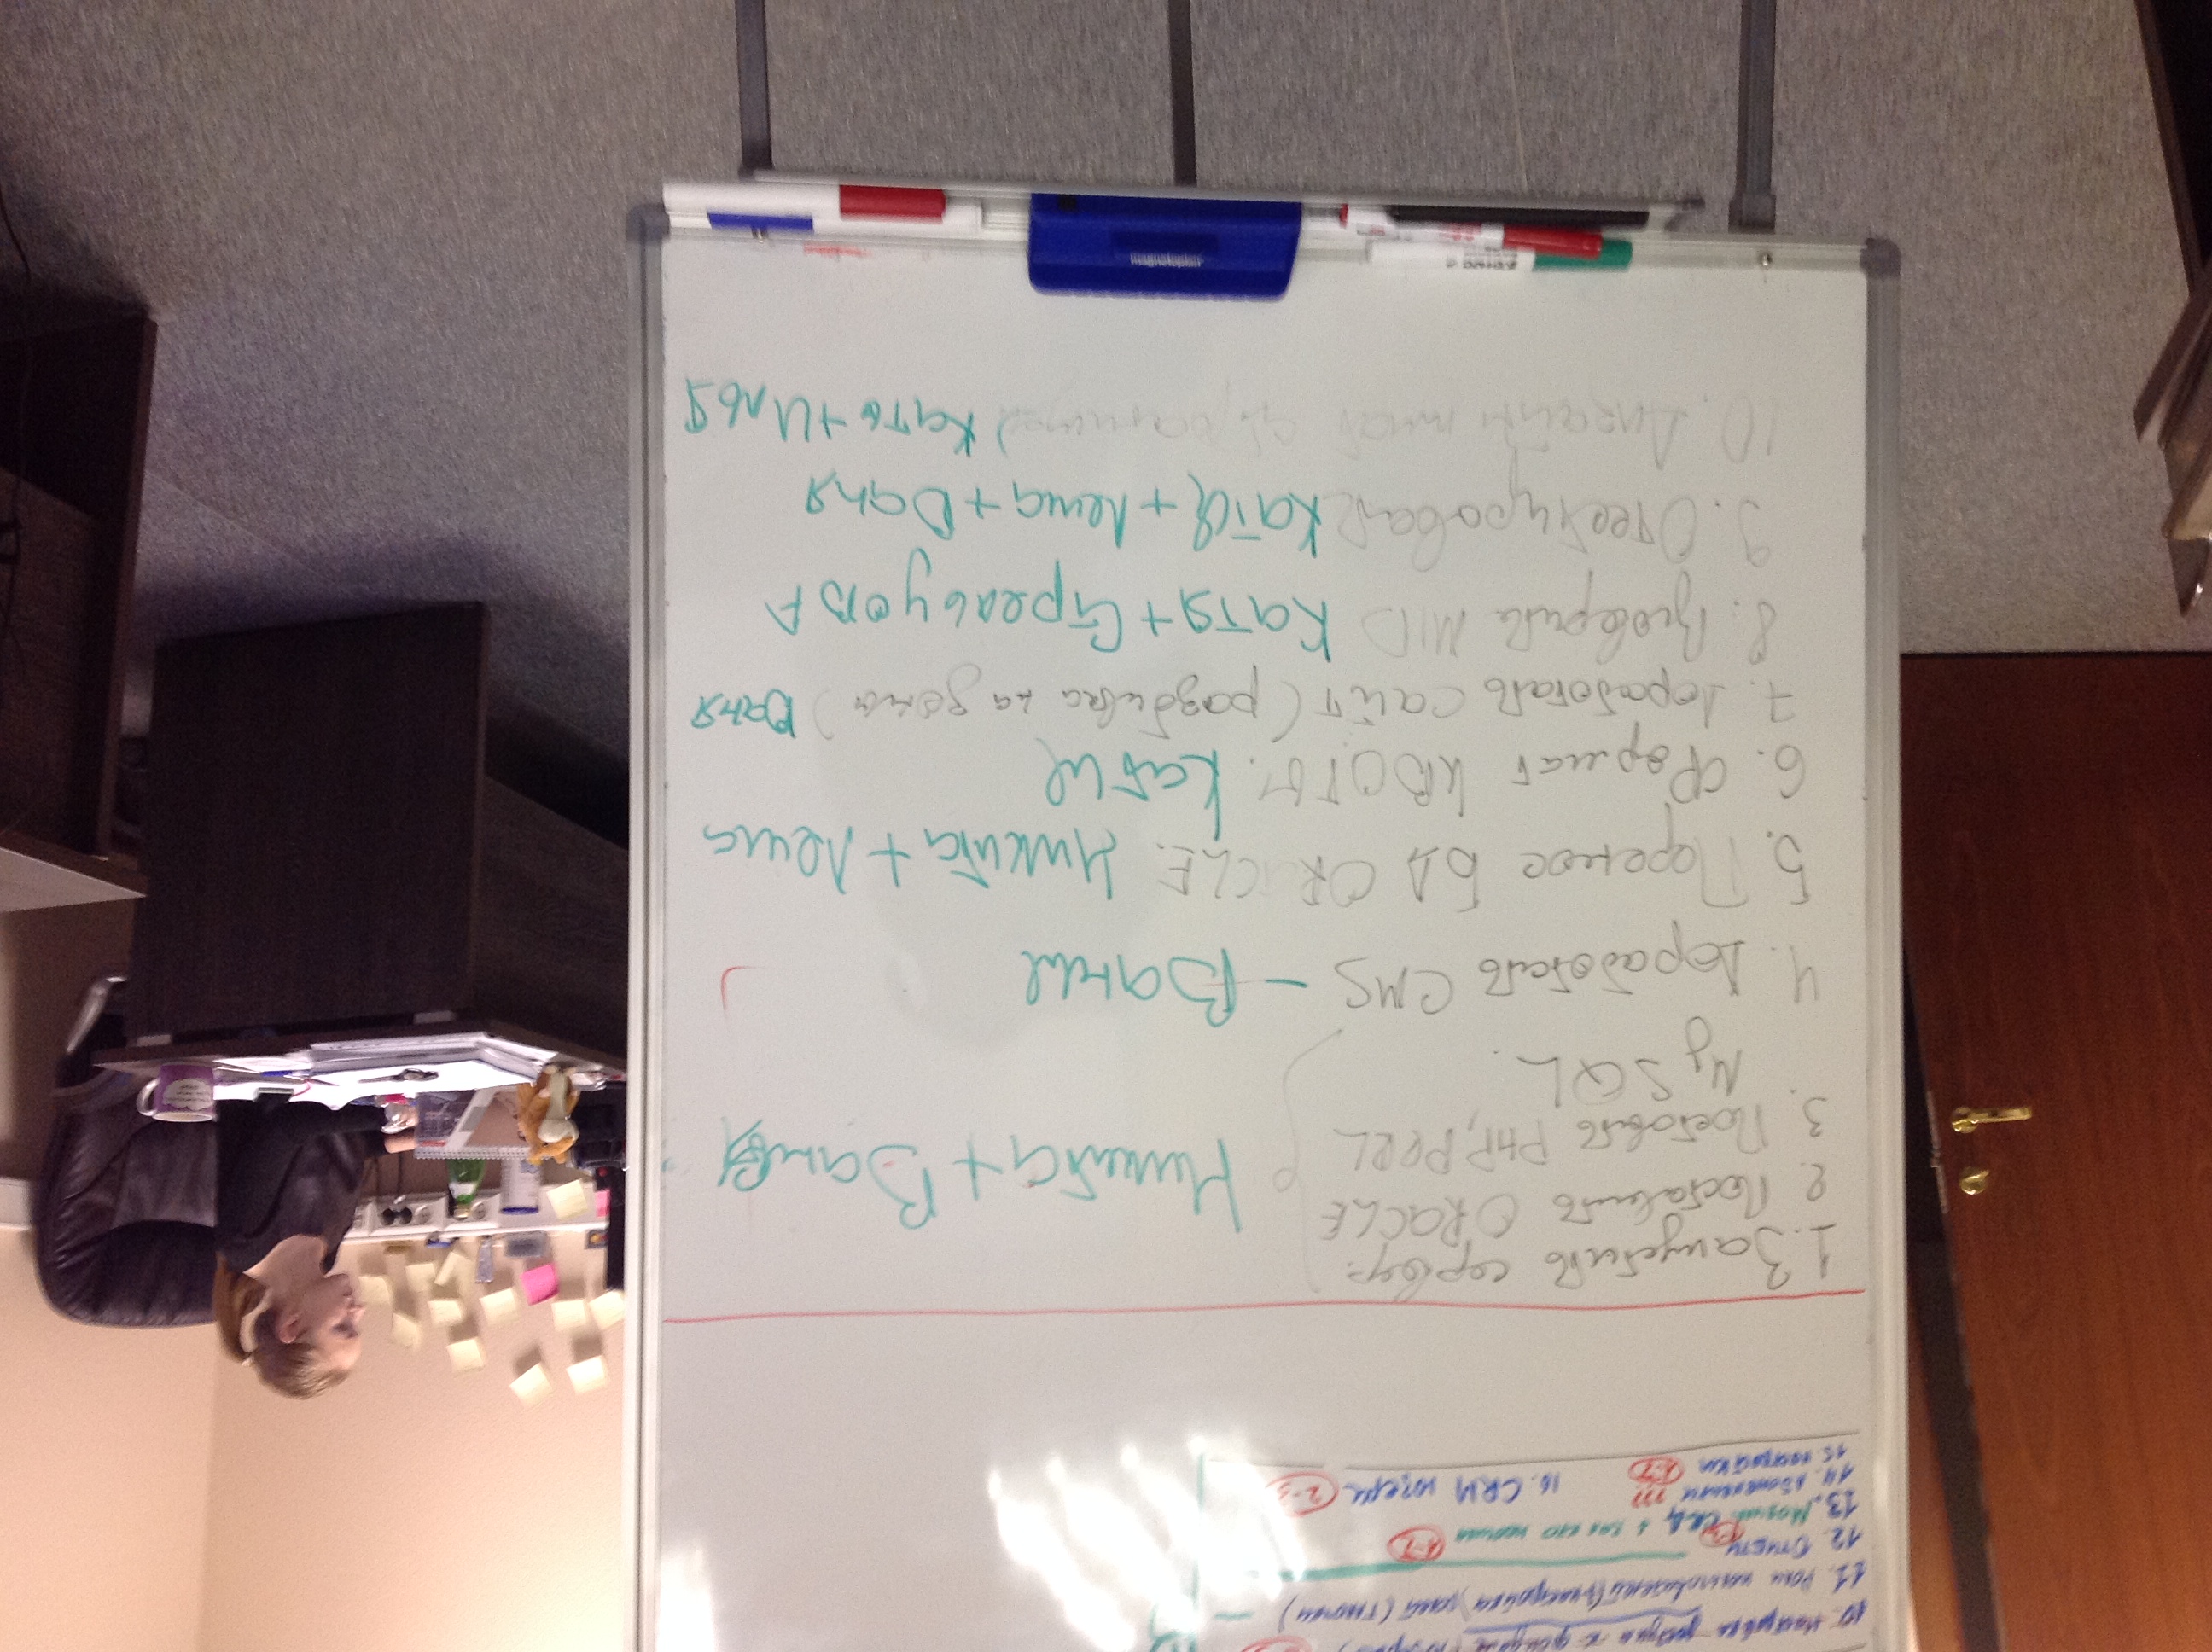 10. Настройка доступа к
11. Роли пользователей (+настройка)
12. Отчеты
13. + кто 1-2
14. Абонементы ???
15. Настройки 1-2
16. CRM юзеры 2-3
1. Запустить сервер.
2. Поставить ORACLE
3. Поставить PHP, PERL
MySQL.
Никита + Ваня
4. Доработать CMS – Ваня
5. Перенос БД ORACLE. Никита + Леша
6. Формат КВОТЫ. Катя
7. Доработать сайт (разбивка на зоны) Ваня
8. Проверить MID Катя + Стрельцова
9. Отестировать Катя + Леша + Ваня
10. Дизайн Катя + Илья